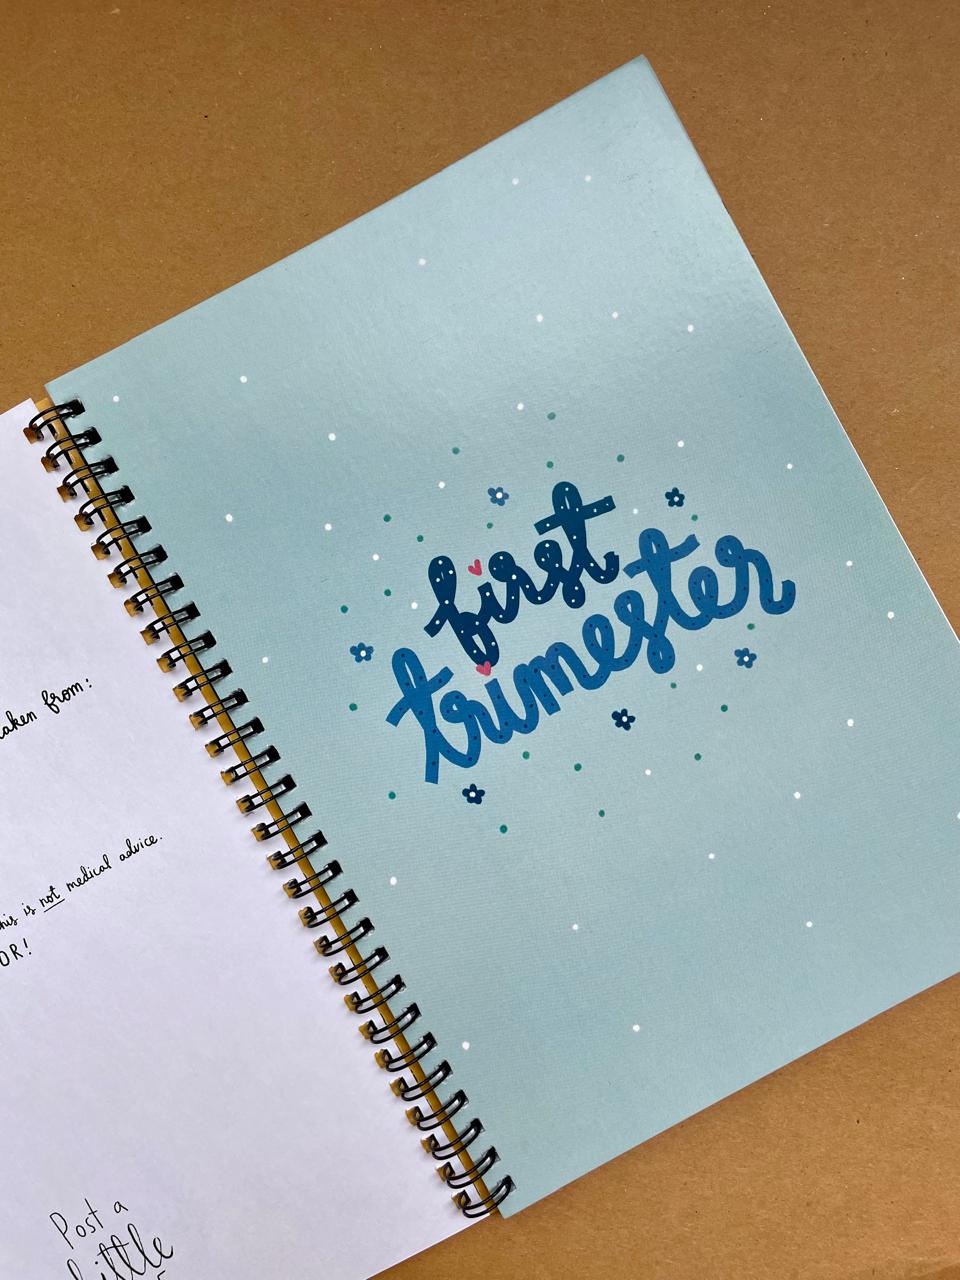 taken from:
this is not medical advice.
OR!
Post a
little
first
trimester